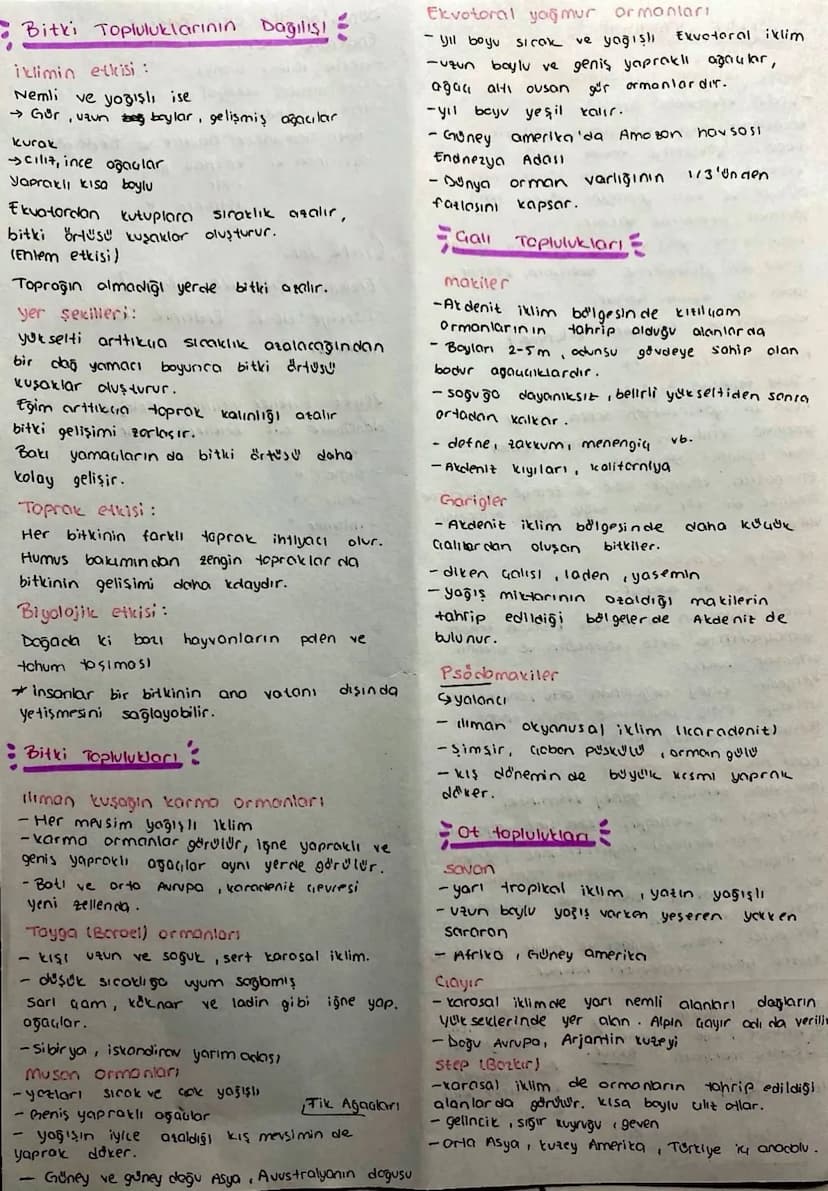 Bitki Topluluklarının Dağılışı
iklimin etkisi :
Nemli ve yağışlı ise
→ Gür, uzun boylar, gelişmiş ağaçlar
Kurak
→ cılız, ince ağaçlar
Yapraklı kısa boylu
Ekvatordan kutuplara sıcaklık azalır,
bitki örtüsü kuşaklar oluşturur.
(Enlem etkisi)
Toprağın olmadığı yerde bitki azalır.
yer şekilleri:
yükselti arttıkça sıcaklık azalacağından
bir dağ yamacı boyunca bitki örtüsü
kuşaklar oluşturur.
Eğim arttıkça toprak kalınlığı azalır
bitki gelişimi zorlaşır.
Bakı yamaçlarında bitki örtüsü daha
kolay gelişir.
Toprak etkisi :
Her bitkinin farklı toprak ihtiyacı olur.
Humus bakımından zengin topraklarda
bitkinin gelişimi daha kolaydır.
Biyolojik etkisi :
Doğada ki bazı hayvanların polen ve
tohum taşıması
* insanlar bir bitkinin ana vatanı dışında
yetişmesini sağlayabilir.
Bitki Toplulukları
ılıman kuşağın karma ormanları
- Her mevsim yağışlı iklim
- karma ormanlar görülür, iğne yapraklı ve
geniş yapraklı ağaçlar aynı yerde görülür.
- Batı ve orta Avrupa, karadeniz çevresi
yeni zellenda.
Tayga (Boreal) ormanları
- kışı uzun ve soğuk, sert karasal iklim.
- düşük sıcaklığa uyum sağlamış
sarı çam, köknar ve ladin gibi iğne yap.
ağaçlar.
- Sibirya, iskandinav yarım adası
Muson ormanları
- yazları sıcak ve çok yağışlı
Tik Ağaçları
- Geniş yapraklı ağaçlar
- yağışın iyice azaldığı kış mevsiminde
yaprak döker.
- Güney ve güney doğu Asya, Avustralyanın doğusu
Ekvatoral yağmur ormanları
- yıl boyu sıcak ve yağışlı Ekvatoral iklim
- uzun boylu ve geniş yapraklı ağaçlar,
ağaç altı ovsan gür ormanlardır.
- yıl boyu yeşil kalır.
- Güney amerika'da Amazon havsası
Endnezya Adası
- Dünya orman varlığının 1/3'ünden
fazlasını kapsar.
Çalı Toplulukları
makiler
- Akdeniz iklim bölgesinde kızılçam
ormanlarının tahrip olduğu alanlarda
- Boyları 2-5m, odunsu gövdeye sahip olan
bodur ağaççıklardır.
- soğuğa dayanıksız, belirli yükseltiden sonra
ortadan kalkar.
- defne, zakkum, menengiç vb.
- Akdeniz kıyıları, kaliforniya
Garigler
- Akdeniz iklim bölgesinde daha küçük
çalılardan oluşan bitkiler.
- diken çalısı, laden, yasemin
- yağış miktarının azaldığı makilerin
tahrip edildiği bölgelerde Akdeniz de
bulunur.
Psödomakiler
↳ yalancı
- ılıman okyanusal iklim (karadeniz)
- şimşir, çoban püskülü, orman gülü
- kış döneminde büyük kısmı yaprak
döker.
Ot toplulukları
savan
- yarı tropikal iklim, yazın yağışlı
- uzun boylu yağış varken yeşeren yokken
sararan
- Afrika, Güney amerika
Çayır
- karasal iklimde yarı nemli alanları dağların
yükseklerinde yer alan. Alpin çayır adı da verilir
- Doğu Avrupa, Arjantin kuzeyi
Step (Bozkır)
- karasal iklim de ormanların tahrip edildiği
alanlarda görülür. kısa boylu cılız otlar.
- gelincik, sığır kuyruğu, geven
- Orta Asya, kuzey Amerika, Türkiye iç anadolu.